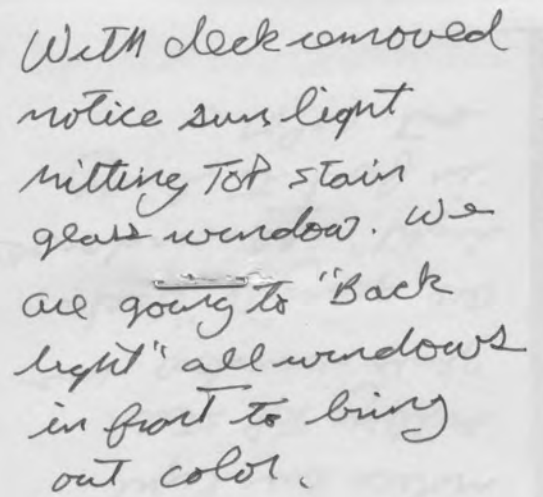 With deck removed
notice sun light
hitting Top stain
glass window. We
are going to "Back
light" all windows
in front to bring
out color.